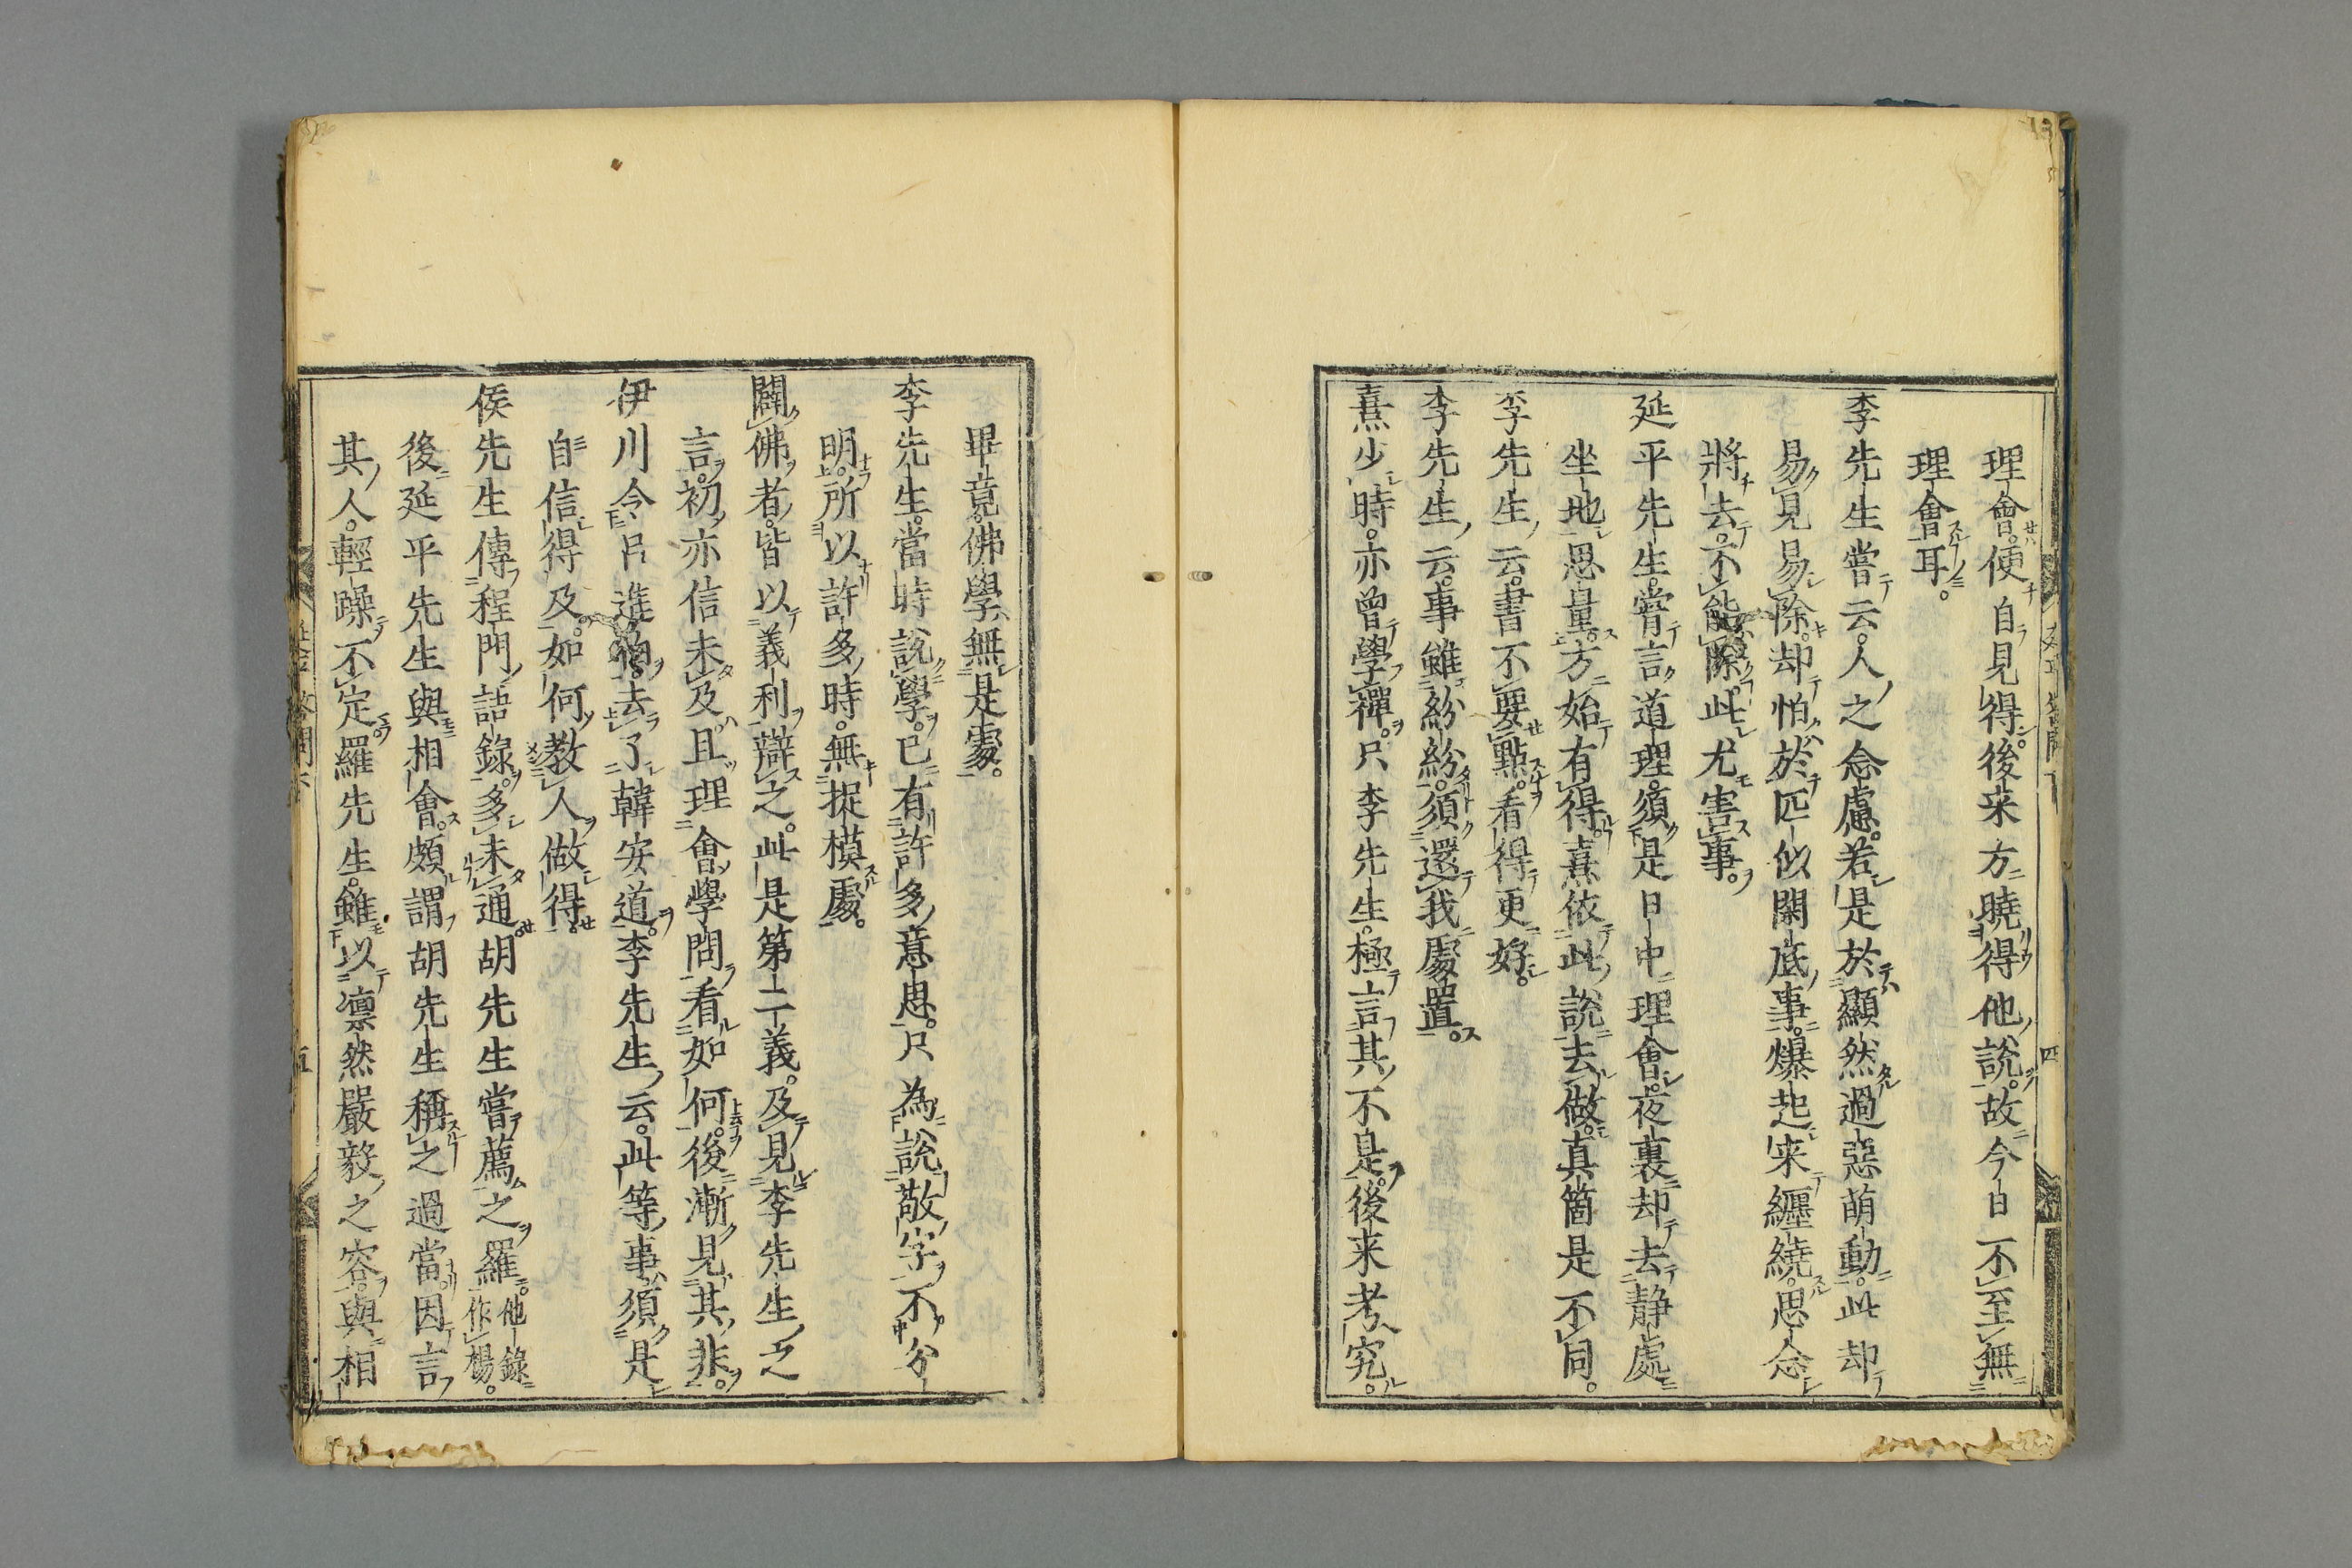 理會便自見得後来方曉得他說故今日不至無
理會耳。
李先生嘗云。人之念慮。若是於顯然過惡萌動。此却
易見易除。却怕於匹似閑底事。爆起来纏繞。思念
將去。不能除。此尤害事。
延平先生。嘗言道理。須是日中理會。夜裏却去静處
坐地思量。方始有得。熹依此說去做。真箇是不同。
李先生云。書不要點。看得更好。
李先生云。事雖紛紛。須還我處置。
熹少時。亦曾學禪。只李先生。極言其不是。後来考究。
畢竟。佛學無是處。
李先生。當時說學。已有許多意思。只為說敬字不分
明。所以許多時。無捉模處。
闢佛者。皆以義利辯之。此是第二義。及見李先生之
言。初亦信未及。且理會學問看如何。後漸見其非。
伊川令呂進伯。去了韓安道。李先生云。此等事。須是
自信得及。如何教人做得。
侯先生傳程門語錄。多未通。胡先生嘗薦之羅。他錄作楊。
後延平先生與相會。頗謂胡先生稱之過當。因言
其人。輕躁不定。羅先生。雖以凛然嚴毅之容。與相
四
五